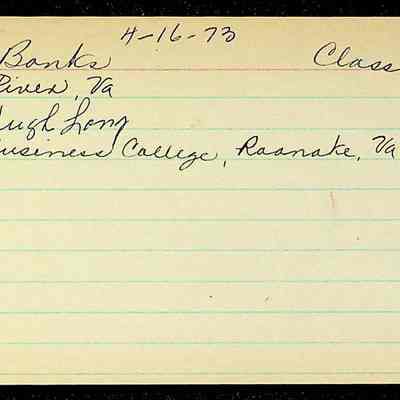 4-16-73
Banks Class
River, Va
Hugh Long
Business College, Roanoke, Va